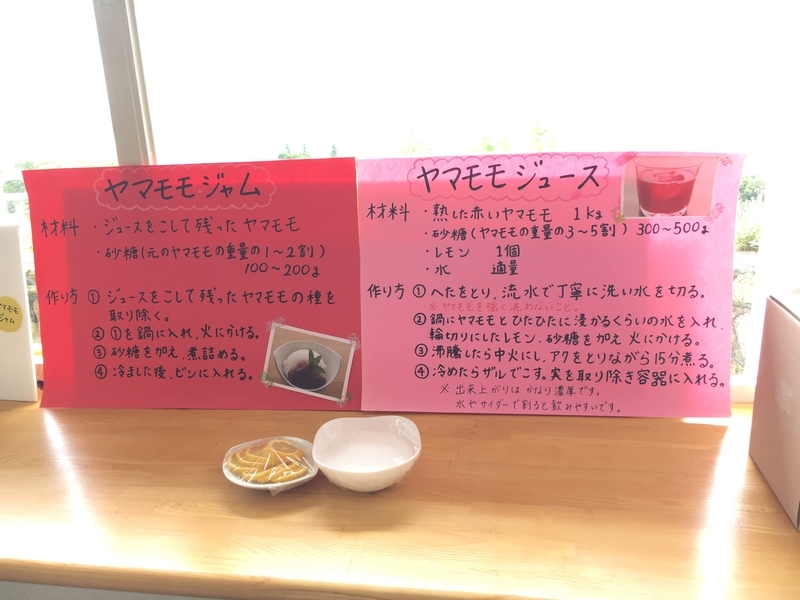 ヤマモモジャム
材料 ・ジュースをこして残ったヤマモモ
・砂糖(元のヤマモモの重量の1〜2割)
100〜200g
作り方 ① ジュースをこして残ったヤマモモの種を
取り除く。
② ①を鍋に入れ、火にかける。
③ 砂糖を加え、煮詰める。
④ 冷ました後、ビンに入れる。
ヤマモモジュース
材料 ・熟した赤いヤマモモ 1kg
・砂糖(ヤマモモの重量の3〜5割) 300〜500g
・レモン 1個
・水 適量
作り方 ① へたをとり、流水で丁寧に洗い水を切る。
※ヤマモモを強く洗わないこと。
② 鍋にヤマモモとひたひたに浸かるくらいの水を入れ、
輪切りにしたレモン、砂糖を加え火にかける。
③ 沸騰したら中火にし、アクをとりながら15分煮る。
④ 冷めたらザルでこす。実を取り除き容器に入れる。
※ 出来上がりはかなり濃厚です。
水やサイダーで割ると飲みやすいです。
ヤマモモ
ジャム